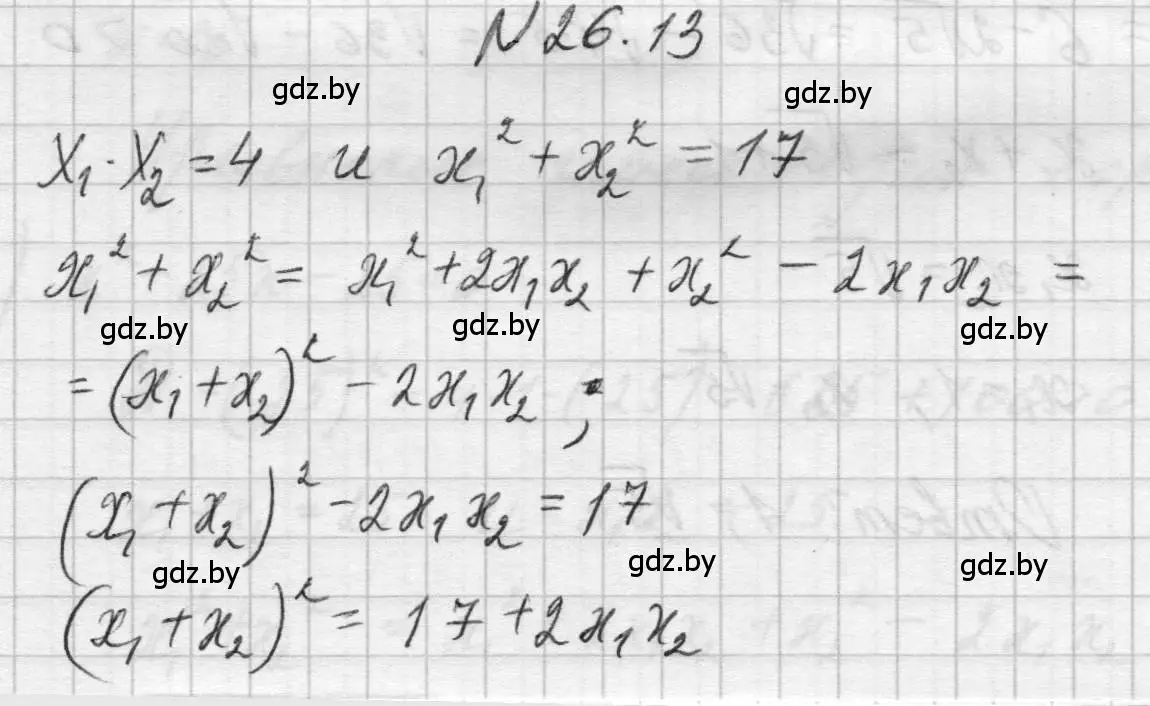 N 26.13
gdz.by gdz.by
x₁·x₂ = 4 и x₁² + x₂² = 17
x₁² + x₂² = x₁² + 2x₁x₂ + x₂² - 2x₁x₂ =
gdz.by gdz.by gdz.by
= (x₁ + x₂)² - 2x₁x₂ ;
(x₁ + x₂)² - 2x₁x₂ = 17
gdz.by gdz.by gdz.by
(x₁ + x₂)² = 17 + 2x₁x₂